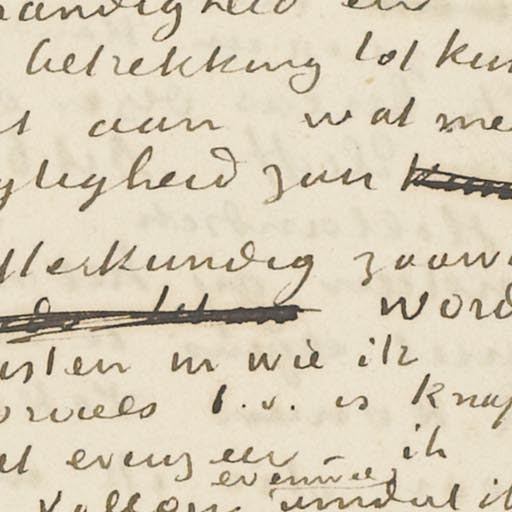 handigheid en
betrekking tot kun
t aan wat me
gligheid zan
tterkundig zoow
word
isten in wie ik
orviels t.v. is knap
et evenzeer – ik
evenwel
omdat ik